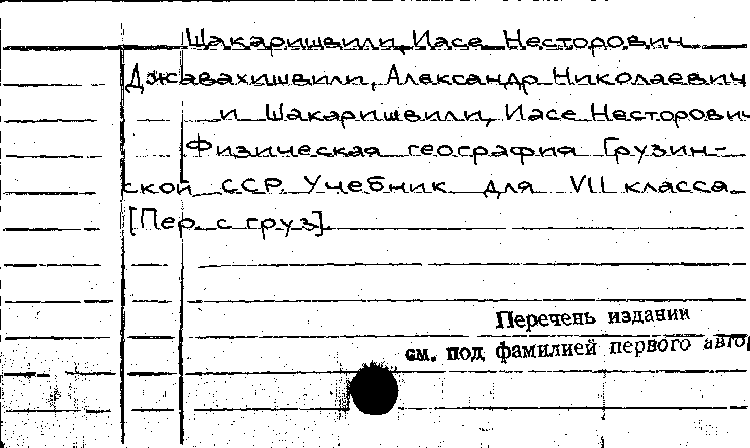 Шакаришвили, Иасе Несторович
Джавахишвили, Александр Николаевич
и Шакаришвили, Иасе Несторович
Физическая география Грузин-
ской ССР. Учебник для VII класса
[Пер. с груз].
Перечень издании
см. под фамилией первого автор